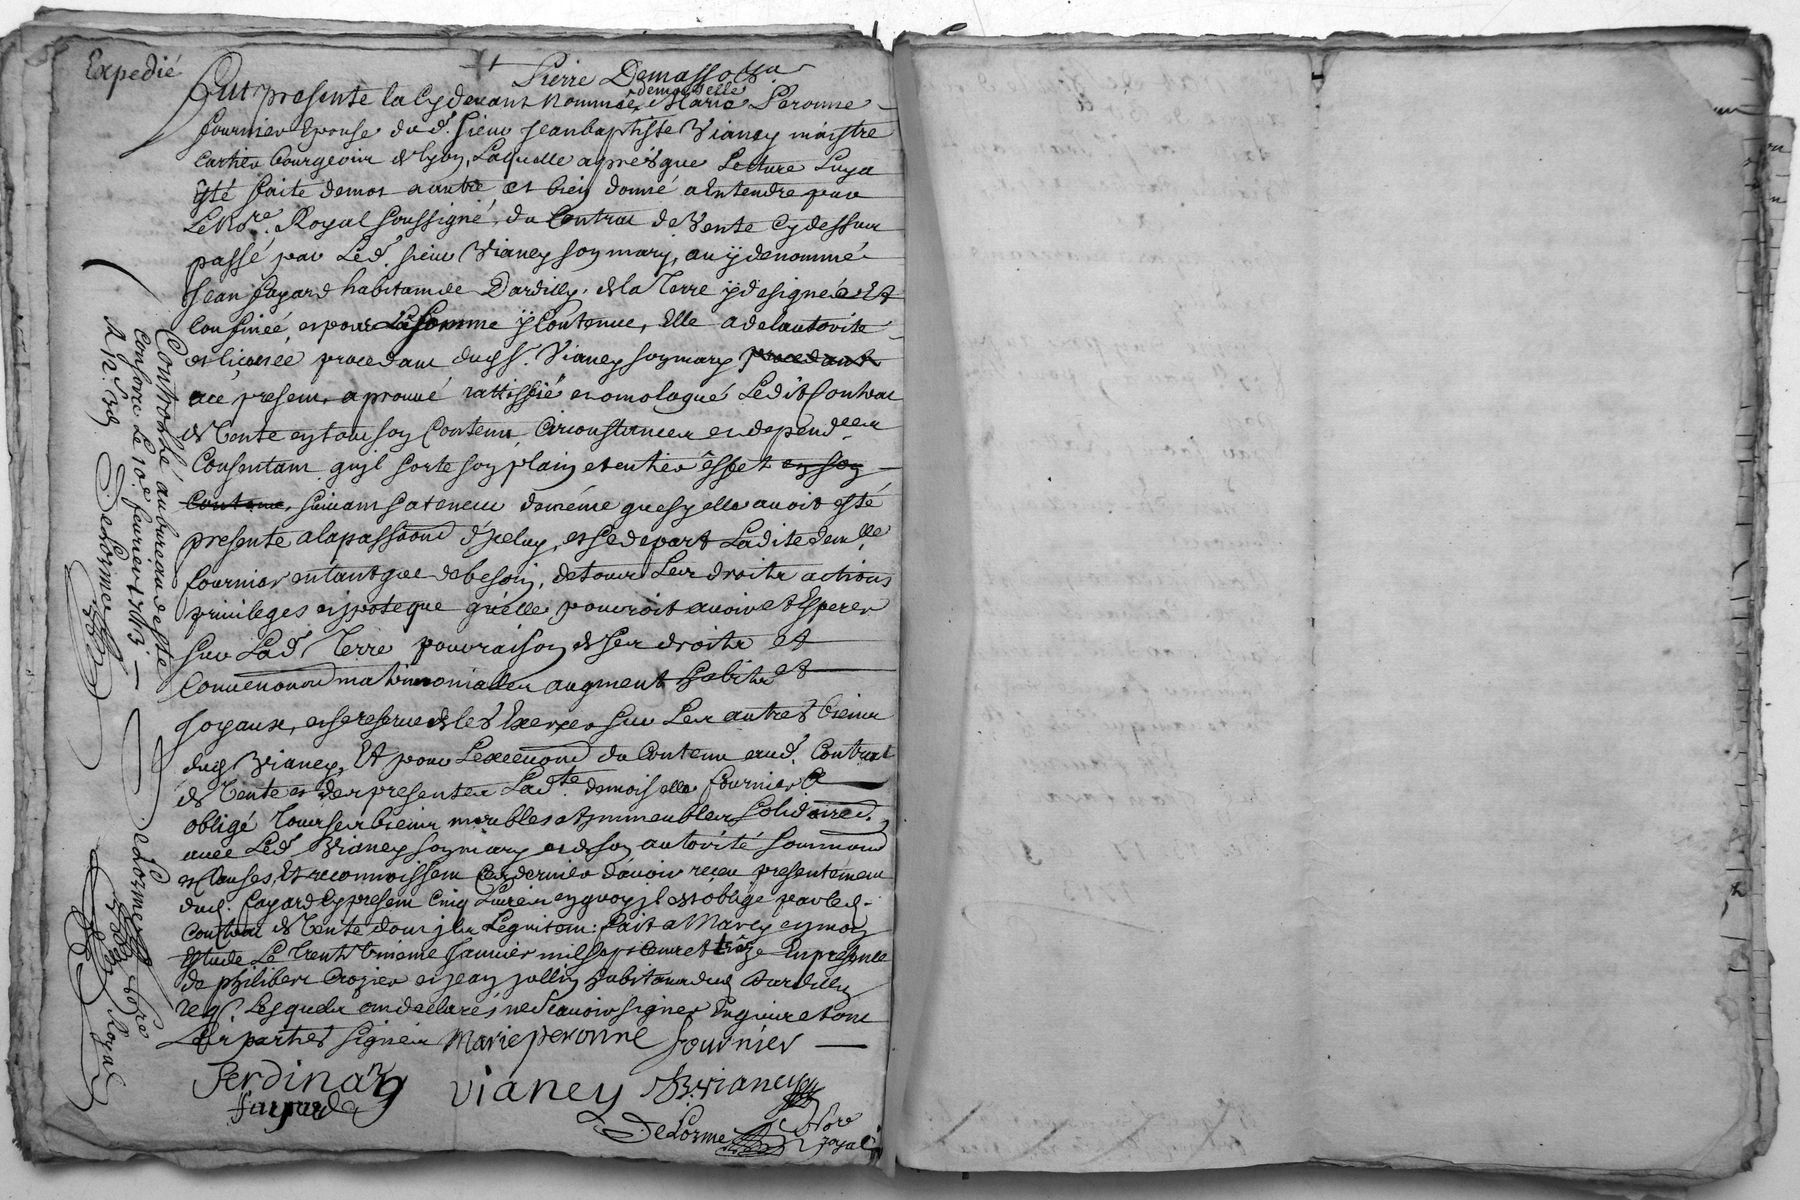 Expedié
Pierre Demasso
fut presente la Cydevant Nommée demoiselle Marie Peronne
fournier Epouse dud. sieur Jean baptiste Vianey maistre
Cartier bourgeois de lyon, Laquelle aprés que Lecture Luy a
esté faite de mot a autre et bien donné a Entendre par
Le No.re Royal soussigné, du Contrat de Vente Cy dessus
passé par Led. sieur Vianey son mary, au y denommé
Jean fayard habitant de Dardilly, de la Terre y designée Et
Confinée, et pour La somme y Contenue, Elle a de lautorité
et licence procedant dud. s.r Vianey son mary procedant
ace present, a prouvé rattiffié et omologué Ledit Contrat
de Vente en tout son Contenu Circonstances et depend.ces
Consentant qu'jl sorte son plain et entier êffet en son
Contenu, suivant sa teneur de méme que sy elle avoit esté
presente a la passaõn d'jceluy, et se depart Ladite dem.lle
fournier en tant que de besoin, de tous Les droits actions
privileges et ypoteque qu'elle pouvroit avoir et Esperer
sur Lad. Terre pour raison de ses droits et
Convenõns matrimonialles augment habits et
Joyaux, et se reserve de les Exercer sur Les autres biens
dud. Vianey, Et pour Lexecuõn du Contenu aud. Contrat
de Vente et des presentes Lad.te demoiselle fournier a
obligé tous ses biens meubles et Immeubles solidairem.
avec Led. Vianey son mary et de son autorité soumõns
et Clauses, Et reconnoissent Ces dernier d'avoir receu presentement
dud. fayard Cy present Cinq Livres en quoy jl est obligé par led.
Contrat de Vente dont jls Le quitent: fait a Marcy en mon
Estude Le trente unieme Janvier mil sept cent et trêze En presence
de philibert Crozier et jean jullin habitans dud. Dardilly
req. Lesquels ont declarés ne sçavoir signer Enquis et ont
Les parties signées Marie peronne fournier
Ferdinan Vianey JB Vianey
fayard
DeLorme No.re royal
Controllé au bureau de ste
Consorce Le 10.e fevrier 1713
R 12.s 6d DeLorme
DeLorme No.re Royal